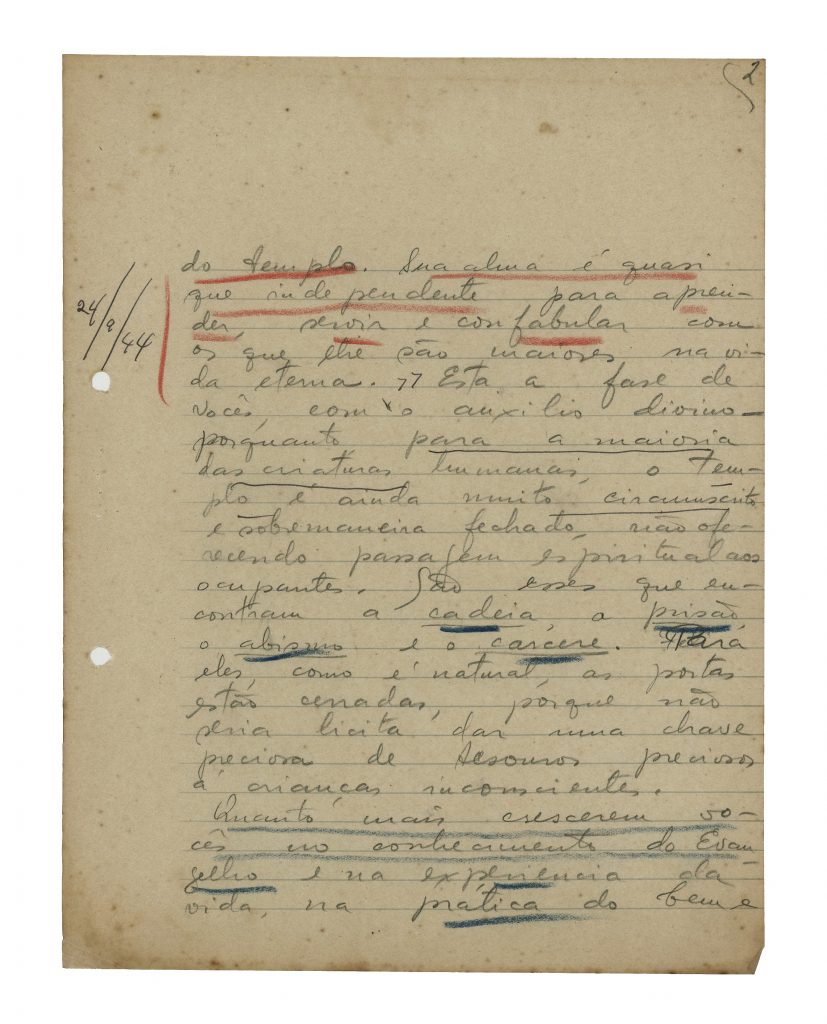 2
do templo. Sua alma é quasi
que independente para apren-
24/9/44
der, servir e confabular com
os que lhe são maiores, na vi-
da eterna. 77 Esta a fase de
vocês, com o auxilio divino -
porquanto, para a maioria
das criaturas humanas, o Tem-
plo é ainda muito circumscrito
e sobremaneira fechado, não ofe-
recendo passagem espiritual aos
ocupantes. São esses que en-
contram a cadeia, a prisão
o abismo e o carcere. Para
eles, como é natural, as portas
estão cerradas, porque não
seria licita dar uma chave
preciosa de tesouros preciosos
á crianças inconscientes.
Quanto mais crescerem vo-
cês no conhecimento do Evan-
gelho e na experiencia da
vida, na prática do bem e